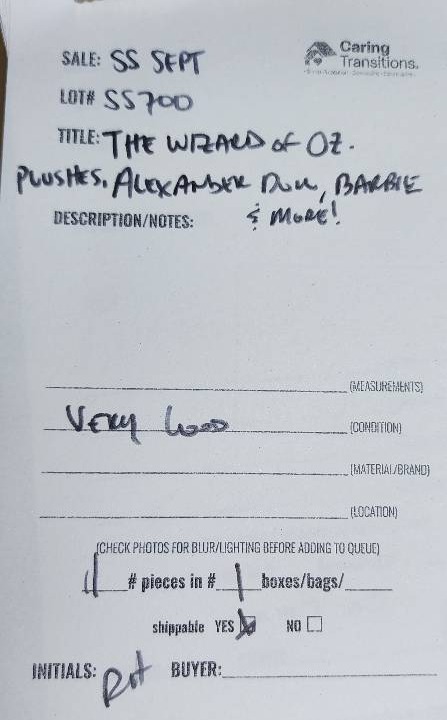 Caring
Transitions.
SALE: SS SEPT
LOT# SS700
TITLE: THE WIZARD of OZ.
PLUSHES, ALEXANDER DOLL, BARBIE
& MORE!
DESCRIPTION/NOTES:
(MEASUREMENTS)
VERY GOOD (CONDITION)
(MATERIAL/BRAND)
(LOCATION)
(CHECK PHOTOS FOR BLUR/LIGHTING BEFORE ADDING TO QUEUE)
11 # pieces in # 1 boxes/bags/
shippable YES NO
INITIALS: BUYER: